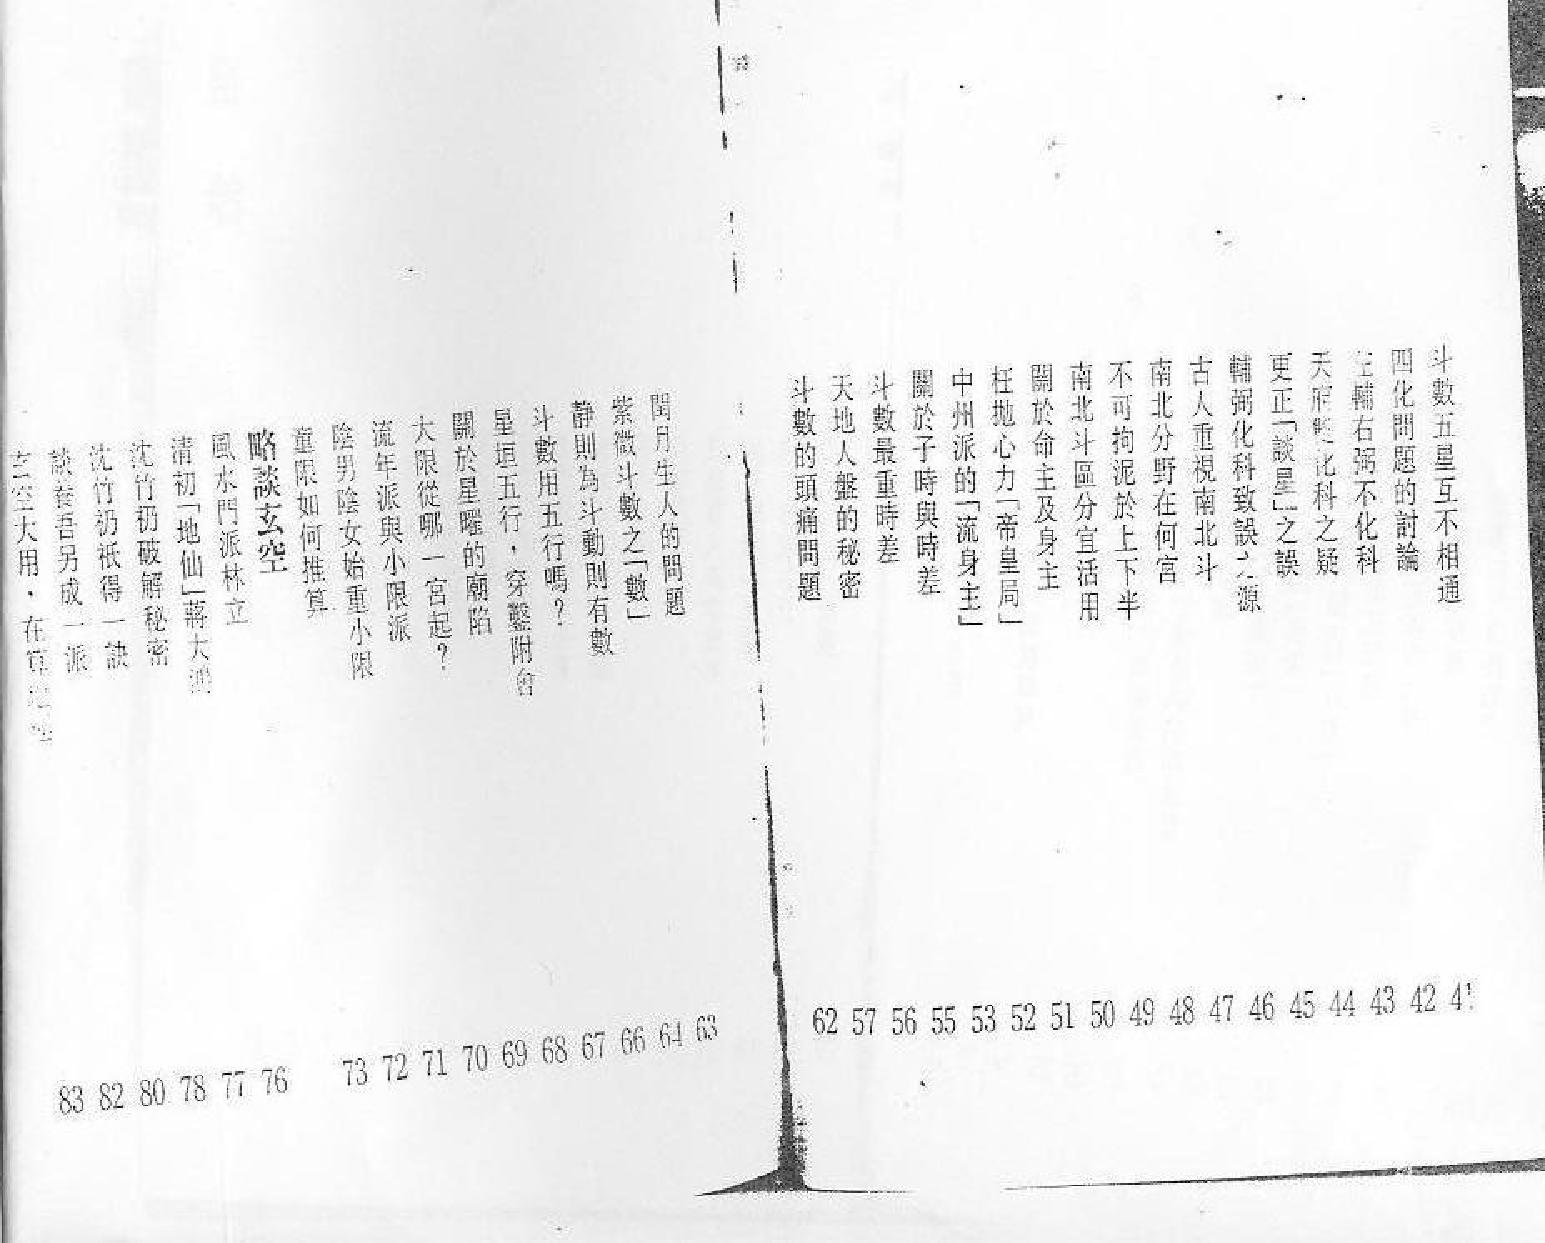 斗數五星互不相通 41
四化問題的討論 42
左輔右弼不化科 43
天府化科之疑 44
更正「談星」之誤 45
輔弼化科致誤之源 46
古人重視南北斗 47
南北分野在何宮 48
不可拘泥於上下半 49
南北斗區分宜活用 50
關於命主及身主 51
枉拋心力「帝皇局」 52
中州派的「流身主」 53
關於子時與時差 55
斗數最重時差 56
天地人盤的秘密 57
斗數的頭痛問題 62
閏月生人的問題 63
紫微斗數之「數」 64
靜則為斗動則有數 66
斗數用五行嗎？ 67
星垣五行，穿鑿附會 68
關於星曜的廟陷 69
大限從哪一宮起？ 70
流年派與小限派 71
陰男陰女始重小限 72
童限如何推算 73
略談玄空
風水門派林立 76
清初「地仙」蔣大鴻 77
沈竹礽破解秘密 78
沈竹礽祇得一訣 80
談養吾另成一派 82
玄空大用，在算 83